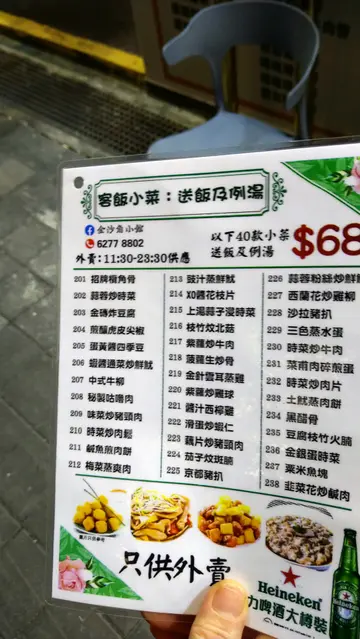 客飯小菜：送飯及例湯
金沙角小館
6277 8802
外賣：11:30-23:30供應
以下40款小菜
送飯及例湯
$68
201 招牌欖角骨
202 蒜蓉炒時菜
203 金磚炸豆腐
204 煎釀虎皮尖椒
205 蛋黃醬四季豆
206 蝦醬通菜炒鮮魷
207 中式牛柳
208 秘製咕嚕肉
209 味菜炒豬頸肉
210 時菜炒肉鬆
211 鹹魚煎肉餅
212 梅菜蒸爽肉
213 豉汁蒸鮮魷
214 XO醬花枝片
215 上湯蒜子浸時菜
216 枝竹炆北菇
217 紫蘿炒牛肉
218 菠蘿生炒骨
219 金針雲耳蒸雞
220 紫蘿炒雞球
221 醬汁西檸雞
222 滑蛋炒蝦仁
223 藕片炒豬頸肉
224 茄子炆斑腩
225 京都豬扒
226 蒜蓉粉絲炒鮮
227 西蘭花炒雞柳
228 沙拉豬扒
229 三色蒸水蛋
230 時菜炒牛肉
231 菜甫肉碎煎蛋
232 時菜炒肉片
233 土魷蒸肉餅
234 黑醋骨
235 豆腐枝竹火腩
236 金銀蛋時菜
237 粟米魚塊
238 韭菜花炒鹹肉
圖片只供參考
只供外賣
Heineken
力啤酒大樽裝
Heineken